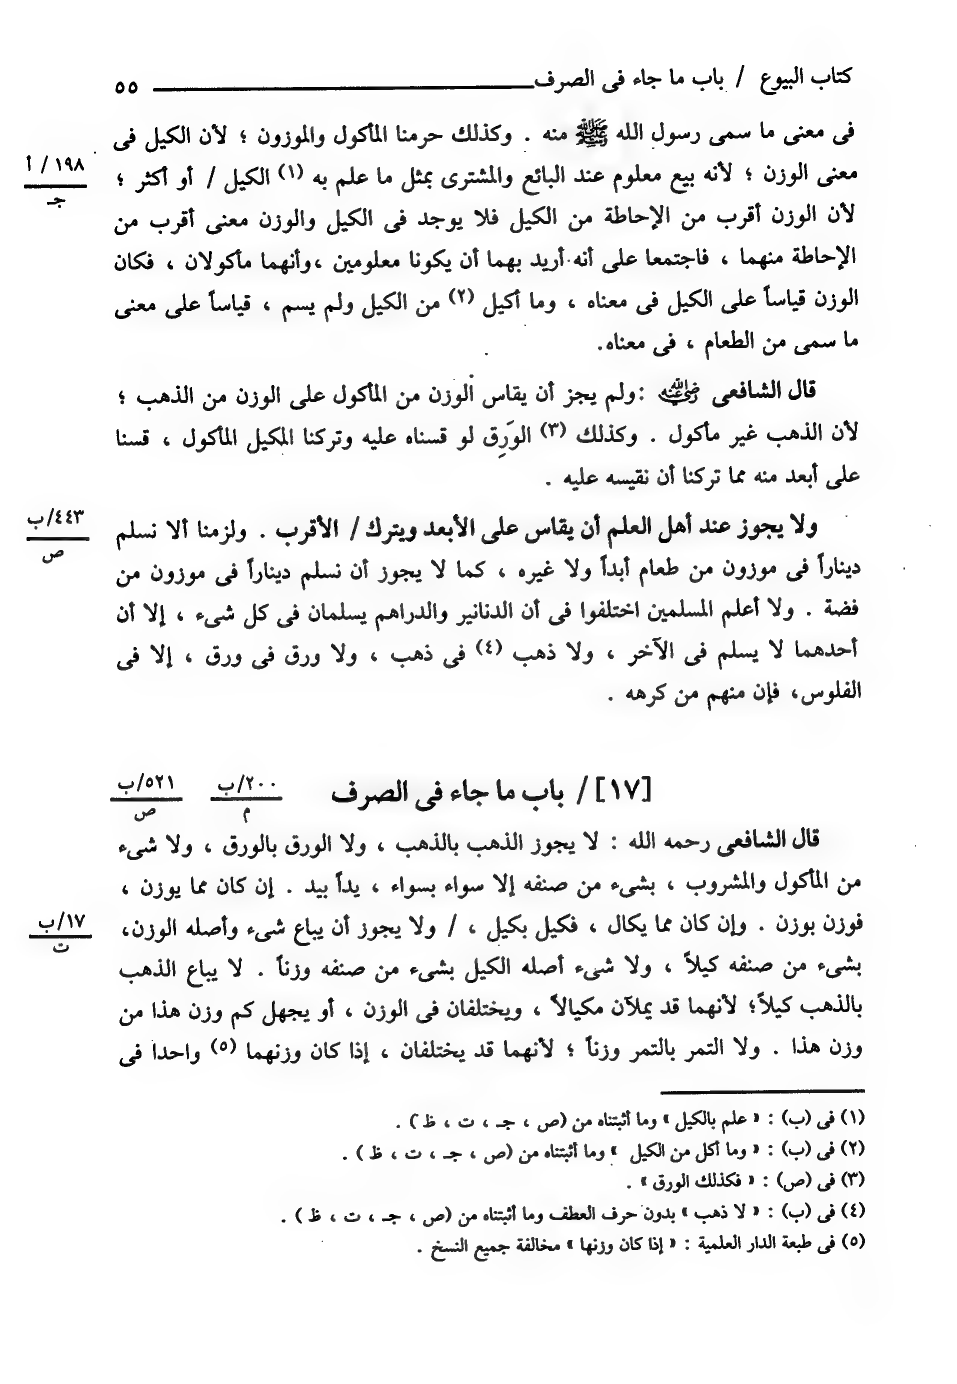 كتاب البيوع / باب ما جاء فى الصرف ٥٥
فى معنى ما سمى رسول الله ﷺ منه . وكذلك حرمنا المأكول والموزون ؛ لأن الكيل فى
١٩٨ / أ
جـ
معنى الوزن ؛ لأنه بيع معلوم عند البائع والمشترى بمثل ما علم به (١) الكيل / أو أكثر ؛
لأن الوزن أقرب من الإحاطة من الكيل فلا يوجد فى الكيل والوزن معنى أقرب من
الإحاطة منهما ، فاجتمعا على أنه أريد بهما أن يكونا معلومين ،وأنهما مأكولان ، فكان
الوزن قياساً على الكيل فى معناه ، وما أكيل (٢) من الكيل ولم يسم ، قياساً على معنى
ما سمى من الطعام ، فى معناه.
قال الشافعى رضي الله عنه :ولم يجز أن يقاس الوزن من المأكول على الوزن من الذهب ؛
لأن الذهب غير مأكول . وكذلك (٣) الوَرِق لو قسناه عليه وتركنا المكيل المأكول ، قسنا
على أبعد منه مما تركنا أن نقيسه عليه .
٤٤٣/ب
ص
ولا يجوز عند أهل العلم أن يقاس على الأبعد ويترك / الأقرب . ولزمنا ألا نسلم
ديناراً فى موزون من طعام أبداً ولا غيره ، كما لا يجوز أن نسلم ديناراً فى موزون من
فضة . ولا أعلم المسلمين اختلفوا فى أن الدنانير والدراهم يسلمان فى كل شىء ، إلا أن
أحدهما لا يسلم فى الآخر ، ولا ذهب (٤) فى ذهب ، ولا ورق فى ورق ، إلا فى
الفلوس، فإن منهم من كرهه .
[١٧] / باب ما جاء فى الصرف
٢٠٠/ب
م
٥٢١/ب
ص
قال الشافعى رحمه الله : لا يجوز الذهب بالذهب ، ولا الورق بالورق ، ولا شىء
من المأكول والمشروب ، بشىء من صنفه إلا سواء بسواء ، يداً بيد . إن كان مما يوزن ،
فوزن بوزن . وإن كان مما يكال ، فكيل بكيل ، / ولا يجوز أن يباع شىء وأصله الوزن،
١٧/ب
ت
بشىء من صنفه كيلاً ، ولا شىء أصله الكيل بشىء من صنفه وزناً . لا يباع الذهب
بالذهب كيلاً؛ لأنهما قد يملآن مكيالاً ، ويختلفان فى الوزن ، أو يجهل كم وزن هذا من
وزن هذا . ولا التمر بالتمر وزناً ؛ لأنهما قد يختلفان ، إذا كان وزنهما (٥) واحدا فى
(١) فى (ب) : « علم بالكيل » وما أثبتناه من (ص ، جـ ، ت ، ظ ) .
(٢) فى (ب) : « وما أكل من الكيل » وما أثبتناه من (ص ، جـ ، ت ، ظ ) .
(٣) فى (ص) : « فكذلك الورق » .
(٤) فى (ب) : « لا ذهب » بدون حرف العطف وما أثبتناه من (ص ، جـ ، ت ، ظ ) .
(٥) فى طبعة الدار العلمية : « إذا كان وزنها » مخالفة جميع النسخ .